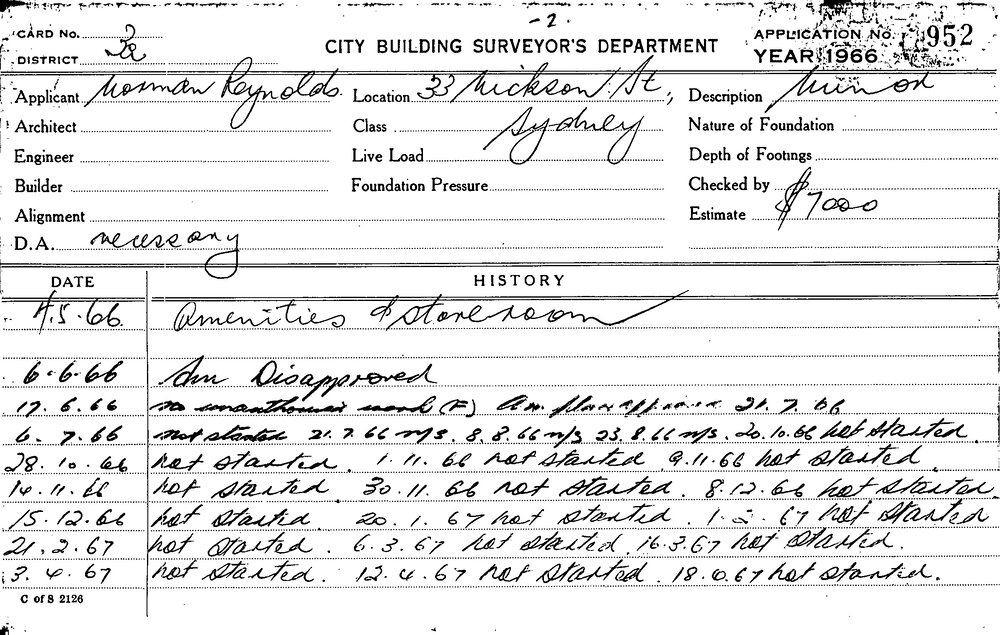 - 2 .
CARD No. 2
CITY BUILDING SURVEYOR'S DEPARTMENT
APPLICATION No. 952
DISTRICT 2a
YEAR 1966
Applicant Norman Reynolds. Location 33 Hickson St, Description Minor
Architect Class Sydney Nature of Foundation
Engineer Live Load Depth of Footings
Builder Foundation Pressure Checked by
Alignment Estimate $7000
D.A. necessary
DATE HISTORY
4.5.66. Amenities & storeroom
6.6.66 Am Disapproved
17.6.66 no unauthorised work (F) Am. plan 21.7.66
6.7.66 not started 21.7.66 n/s. 8.8.66 n/s 23.8.66 n/s. 20.10.66 not started.
28.10.66 not started. 1.11.66 not started. 9.11.66 not started.
14.11.66 not started. 30.11.66 not started. 8.12.66 not started.
15.12.66 not started. 20.1.67 not started. 1.2.67 not started
21.2.67 not started. 6.3.67 not started. 16.3.67 not started.
3.4.67 not started. 12.4.67 not started. 18.4.67 not started.
C of S 2126